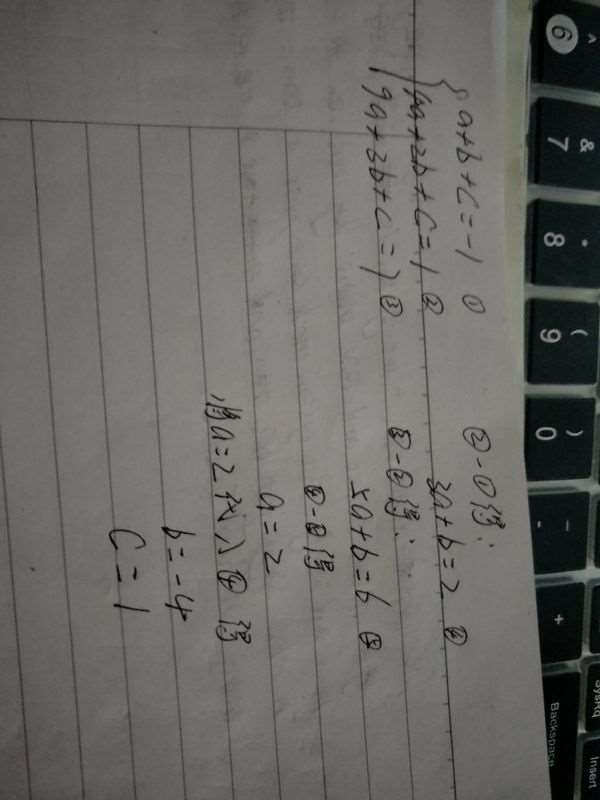 a+b+c=-1 ①
4a+2b+c=1 ②
9a+3b+c=7 ③
②-①得:
3a+b=2 ④
③-②得:
5a+b=6 ⑤
⑤-④得
a=2
将a=2代入④得
b=-4
c=1
^
6
&
7
*
8
(
9
)
0
-
+
Backspace
SysRq
Insert